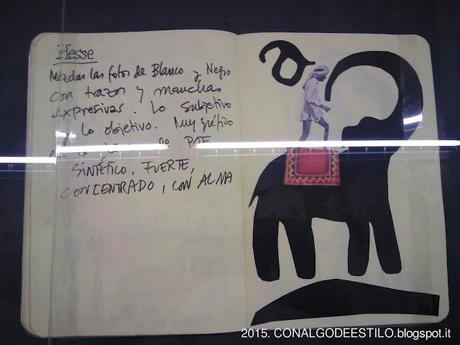 Hesse
Mezclar las fotos de Blanco y Negro
con trazos y manchas
expresivas. Lo subjetivo
y lo objetivo. Muy gráfico
de
SINTÉTICO, FUERTE,
CONCENTRADO, CON ALMA
a
2015. CONALGODEESTILO.blogspot.it